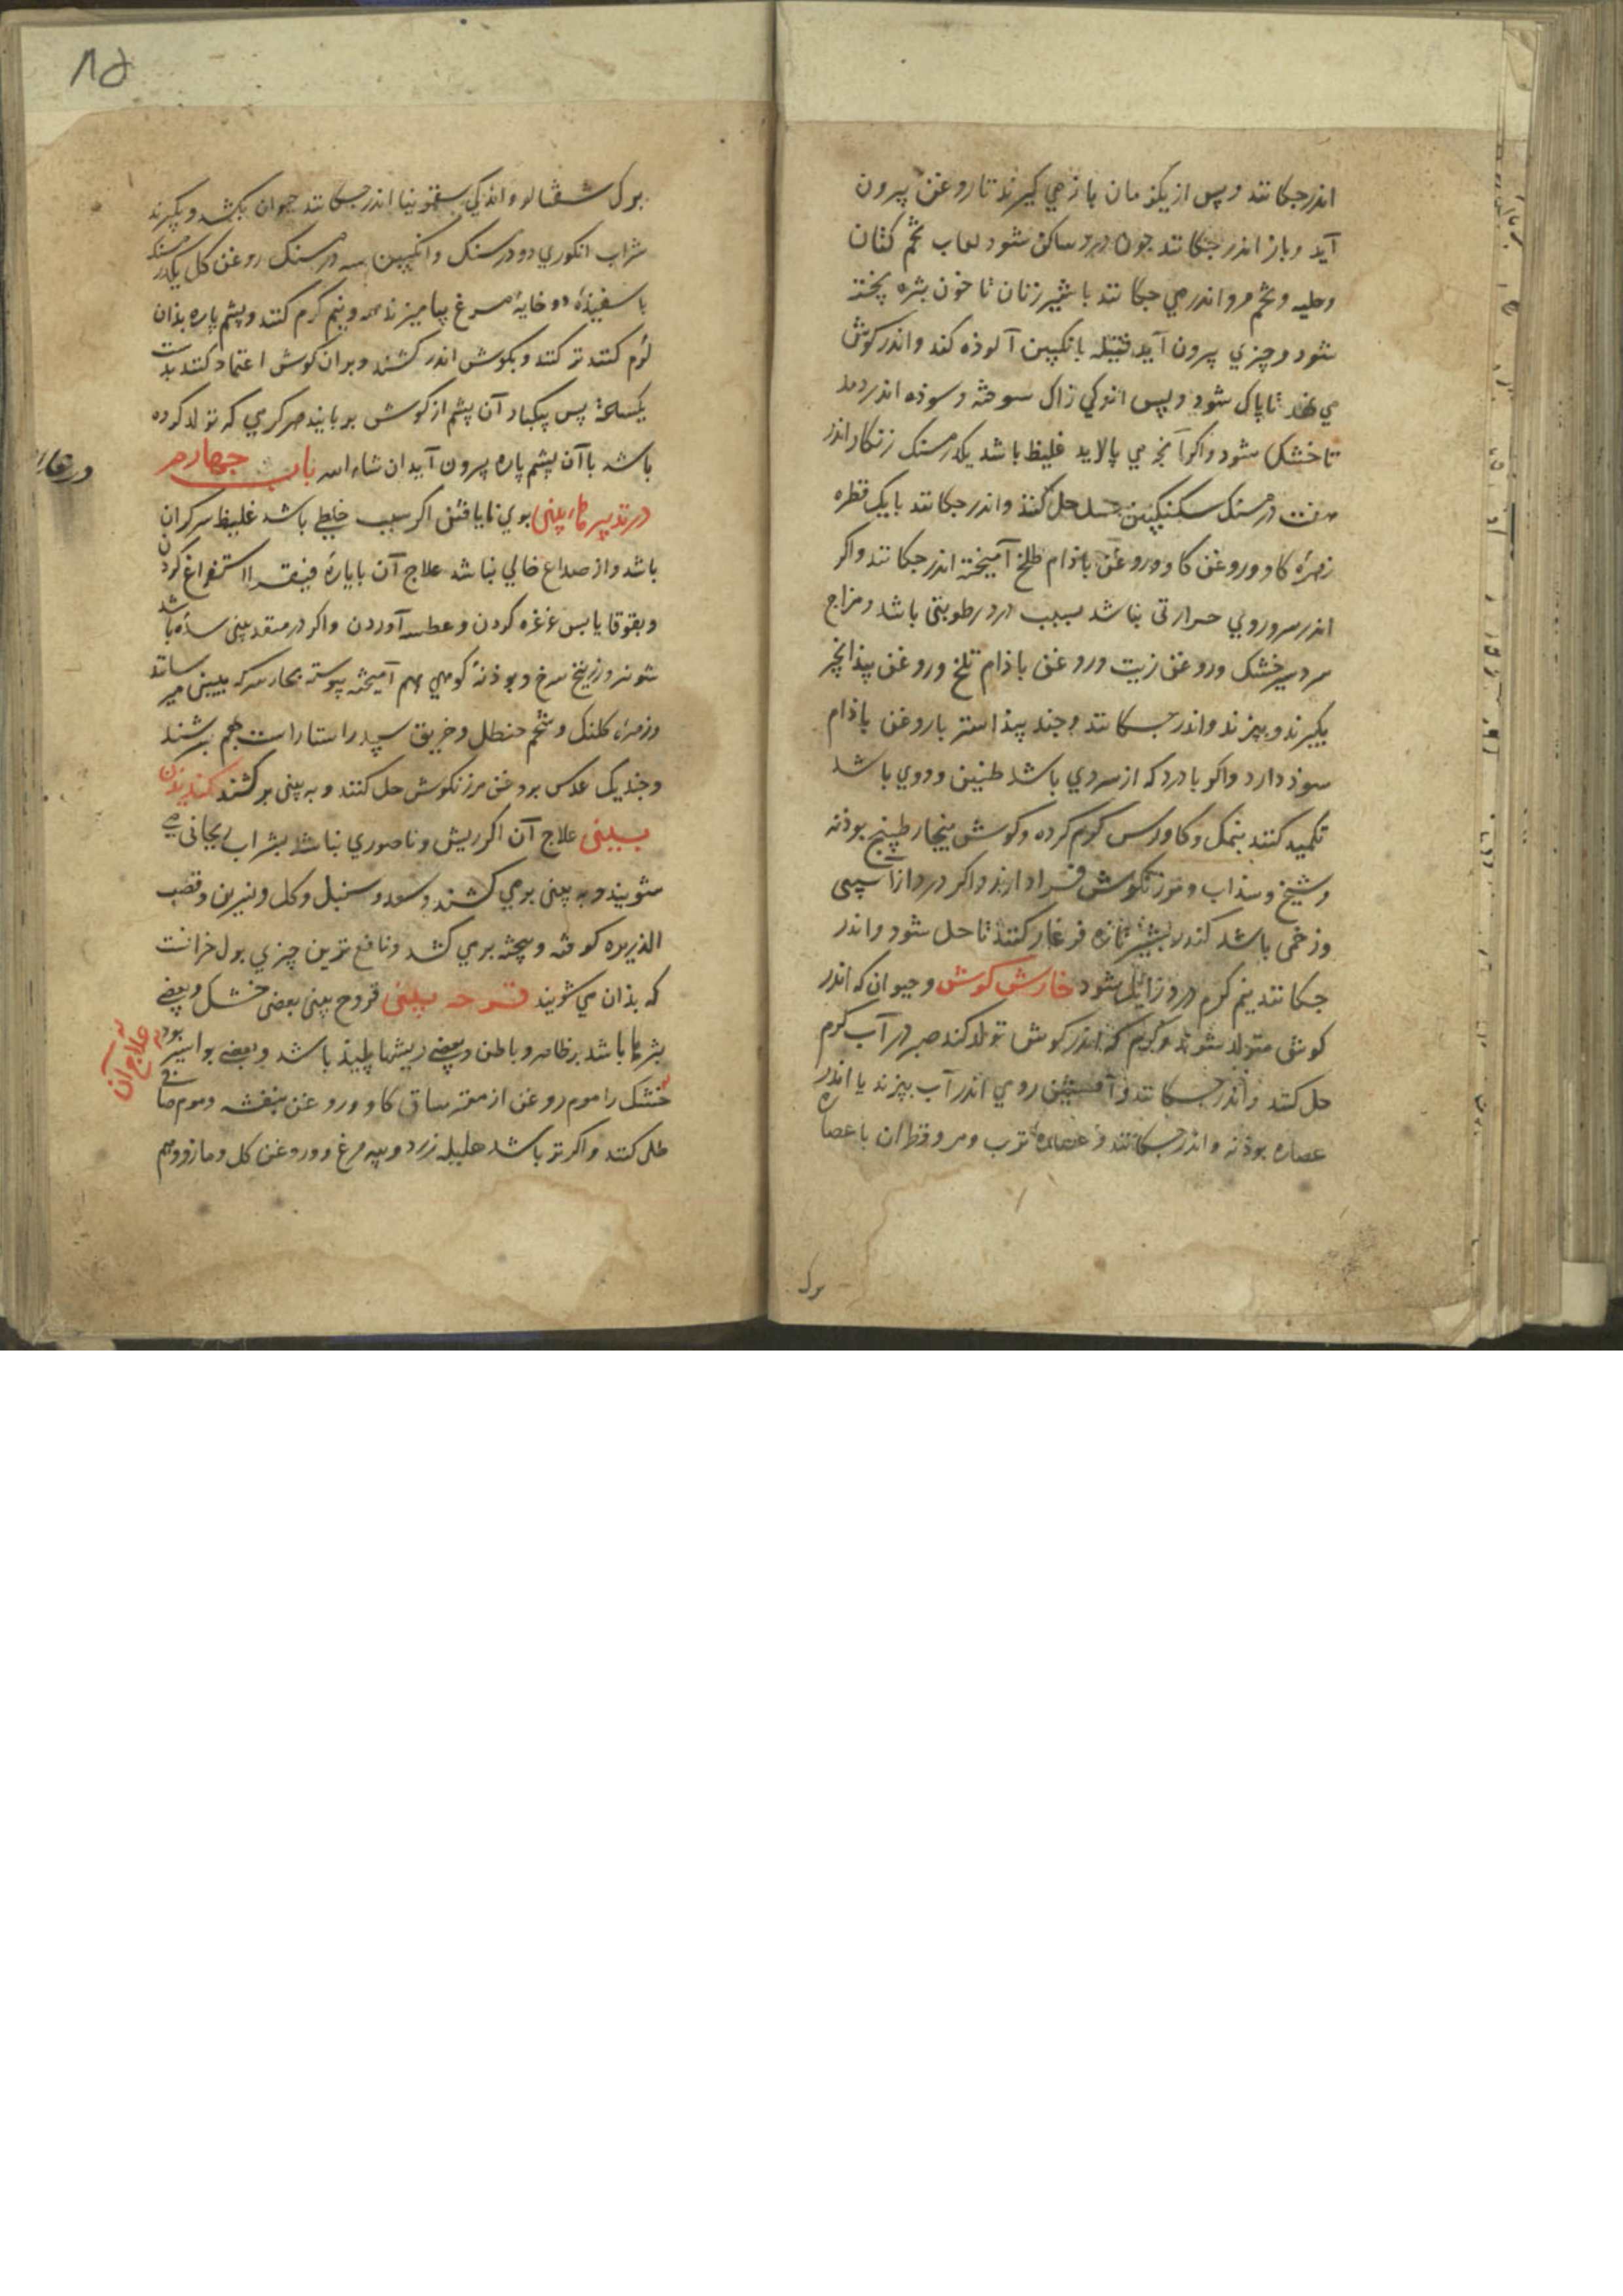 اندرجکانند وپس از یکزمان باز می کیرند تا روغن بیرون
آید و باز اندر جکانند جون درد ساکن شود لعاب تخم کتان
وحلبه وتخم مرو اندر می جکانند با شیر زنان تا جون بثره پخته
شود وچیزي بیرون آید فتیله بانکبین آلوذه کند واندر کوش
می نهند تا پاک شود وپس اندکي زاک سوخته وسوذه اندر دمد
تا خشک شود واکر آنج می پالاید غلیظ باشد یکدرمسنک زنکار اندر
درمسنک سکنکبین عسل حل کنند واندرجکانند با یک قطره
زهرهٔ کاو وروغن کاو وروغن باذام طلخ آمیخته اندر جکانند واکر
اندر سر وروي حرارتی نباشد بسبب درد رطوبتی باشد ومزاج
سرد خشک وروغن زیت وروغن باذام تلخ وروغن پیذانجیر
بکیرند وبپزند واندر جکانند وجند پیذاستر با روغن باذام
سوذ دارد واکر با درد که از سردي باشد طنین ودوي باشد
تکمید کنند بنمک وکاورس کرم کرده وکوش ببخار طبیخ بوذنه
وشیخ وسذاب ومرزنکوش فراد ارند واکر درد از آسیبی
وزخمی باشد کندر بشیر تازه فرغار کنند تا حل شود واندر
جکانند نیم کرم درد زایل شود خارش کوش وحیوان که اندر
کوش متولد شوند وکرم که اندر کوش تولد کند صبر در آب کرم
حل کنند واندر جکانند وآفسنتین رومي اندر آب بپزند یا اندر
عصاره بوذنه واندر جکانند وعصارهٔ ترب ومر وقطران با عصاره
برک
۸۵
برک شفتالو واندکي سقمونیا اندر جکانند حیوان بکشد وبکیرند
شراب انکوري دو درمسنک وانکبین سه درمسنک روغن کل یکدرمسنک
با سفیذهٔ دو خایهٔ مرغ بیامیزند همه ونیم کرم کنند وپشم پاره بذان
تر کنند وبکوش اندر کشند وبران کوش اعتماد کنند بذست
یکساعت پس بیکبار آن پشم از کوش بربایند هر کرمي که تولد کرده
باشد با آن پشم پاره بیرون آید ان شاء الله باب جهارم
در تدبیر بینی بوي نایافتن اکر سبب خلطی باشد غلیظ سرکران
باشد واز صداع خالي نباشد علاج آن بایارهٔ فیقرا استفراغ کردن
وبقوقایا بس غرغره کردن وعطسه آوردن واکر در منفذ بینی سده باشد
شونیز وزرنیخ سرخ وبوذنهٔ کوهي بهم آمیخته پیوسته بخار سرکه ببینی میرسانند
وزهرهٔ کلنک وشحم حنطل وخربق سپید راستا راست بهم بسرشند
وجند یک عدس بروغن مرزنکوش حل کنند وبه بینی برکشند کندیذن
بینی علاج آن اکر ریش وناصوري نباشد بشراب ریحانی می
شویند وبه بینی برمي کشند وسعد وسنبل وکل ونسرین وقصب
الذریره کوفته وبیخته برمي کشد ونافع ترین چیزي بول خرانست
که بذان مي شویند قرحه بینی قروح بینی بعضی خشک وبعضي
بثرها باشد بر ظاهر وباطن وبعضي ریشها پلیذ باشد وبعضي بواسیر بود
علاج آن
خشک را موم روغن از مغز ساق کاو وروغن بنفشه وموم صافي
طلی کنند واکر تر باشد هلیله زرد وپیه مرغ وروغن کل ومازو وهم